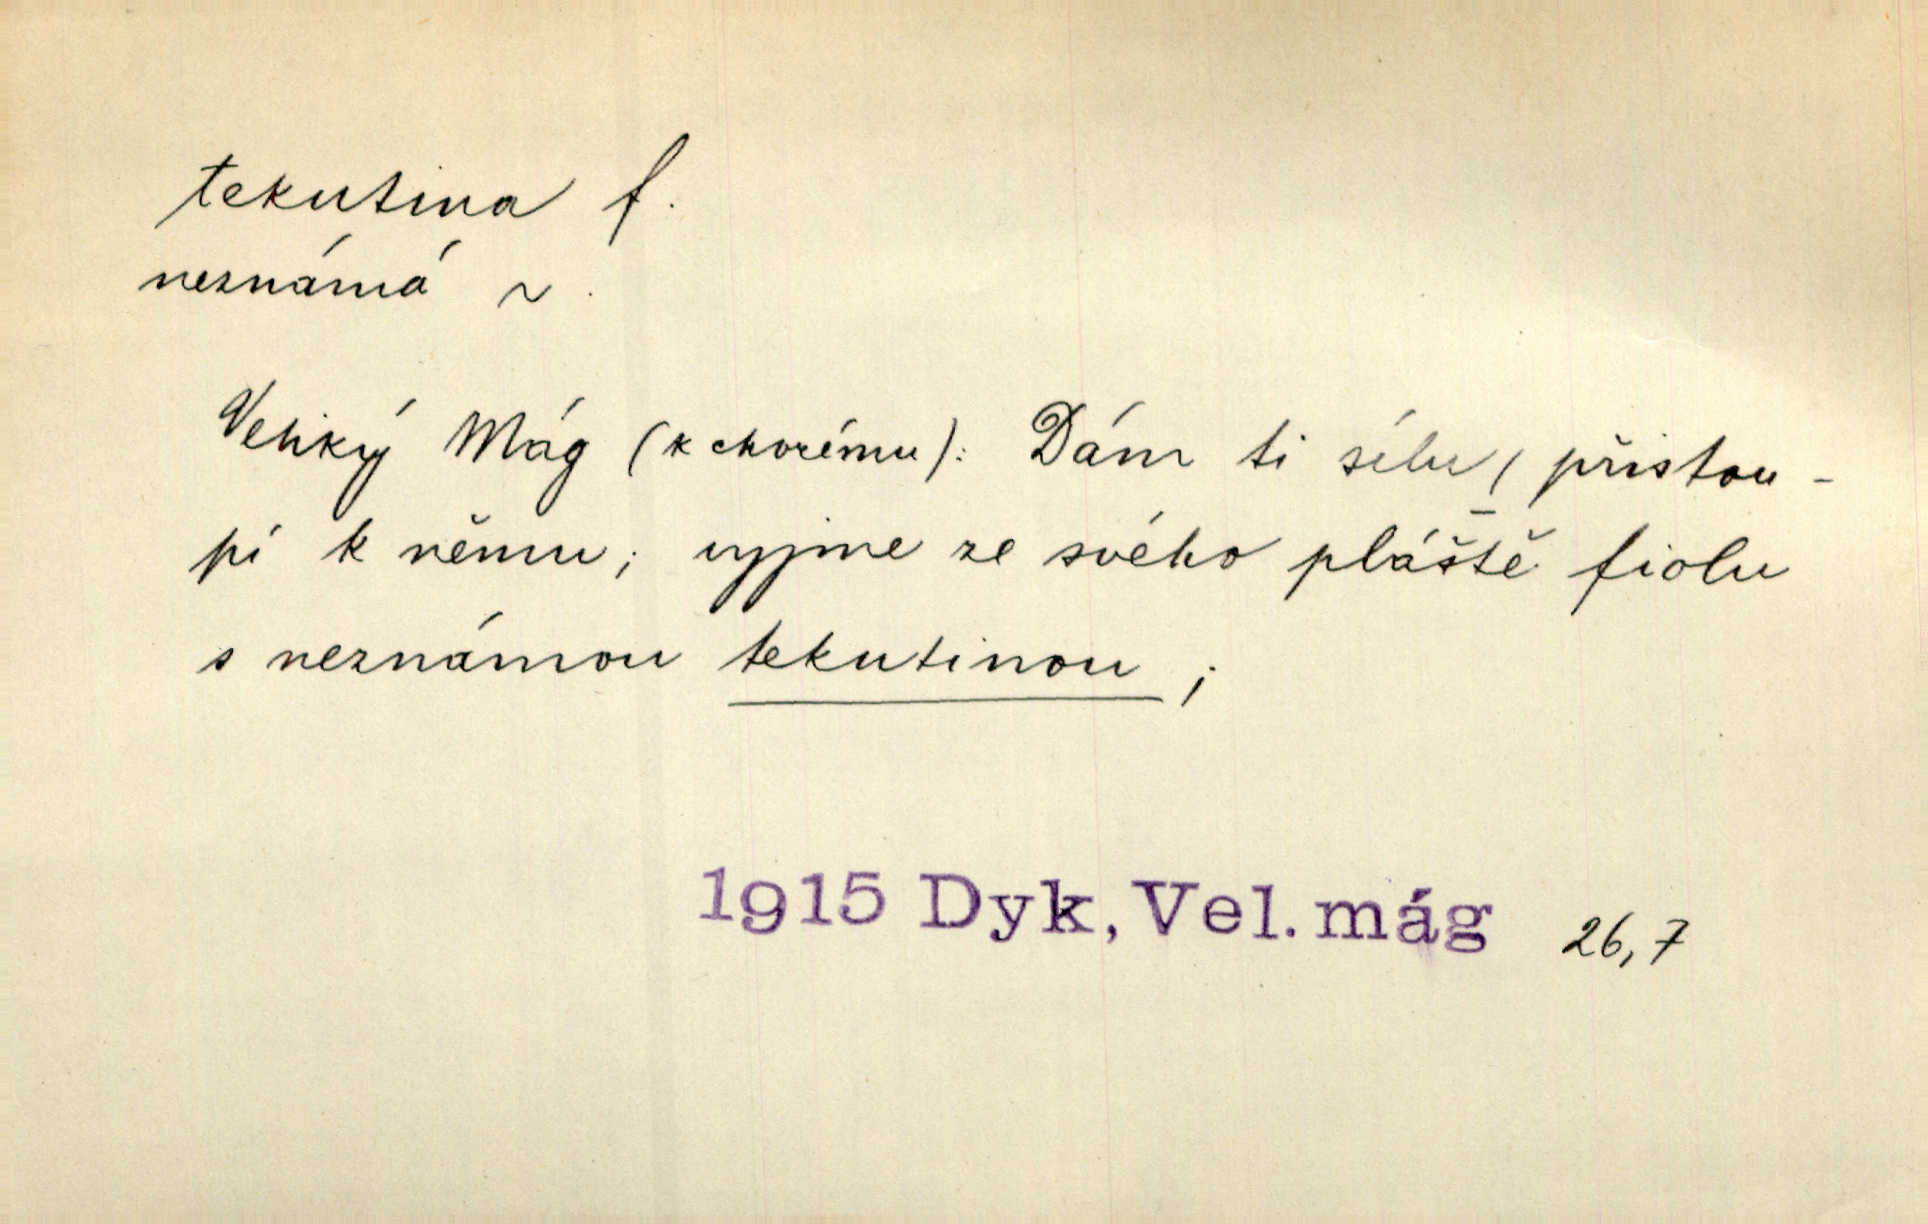 tekutina f.
neznámá ~.
Veliký Mág (k chorému): Dám ti sílu / přistou-
pí k němu; vyjme ze svého pláště fiolu
s neznámou tekutinou;
1915 Dyk, Vel. mág 26,7